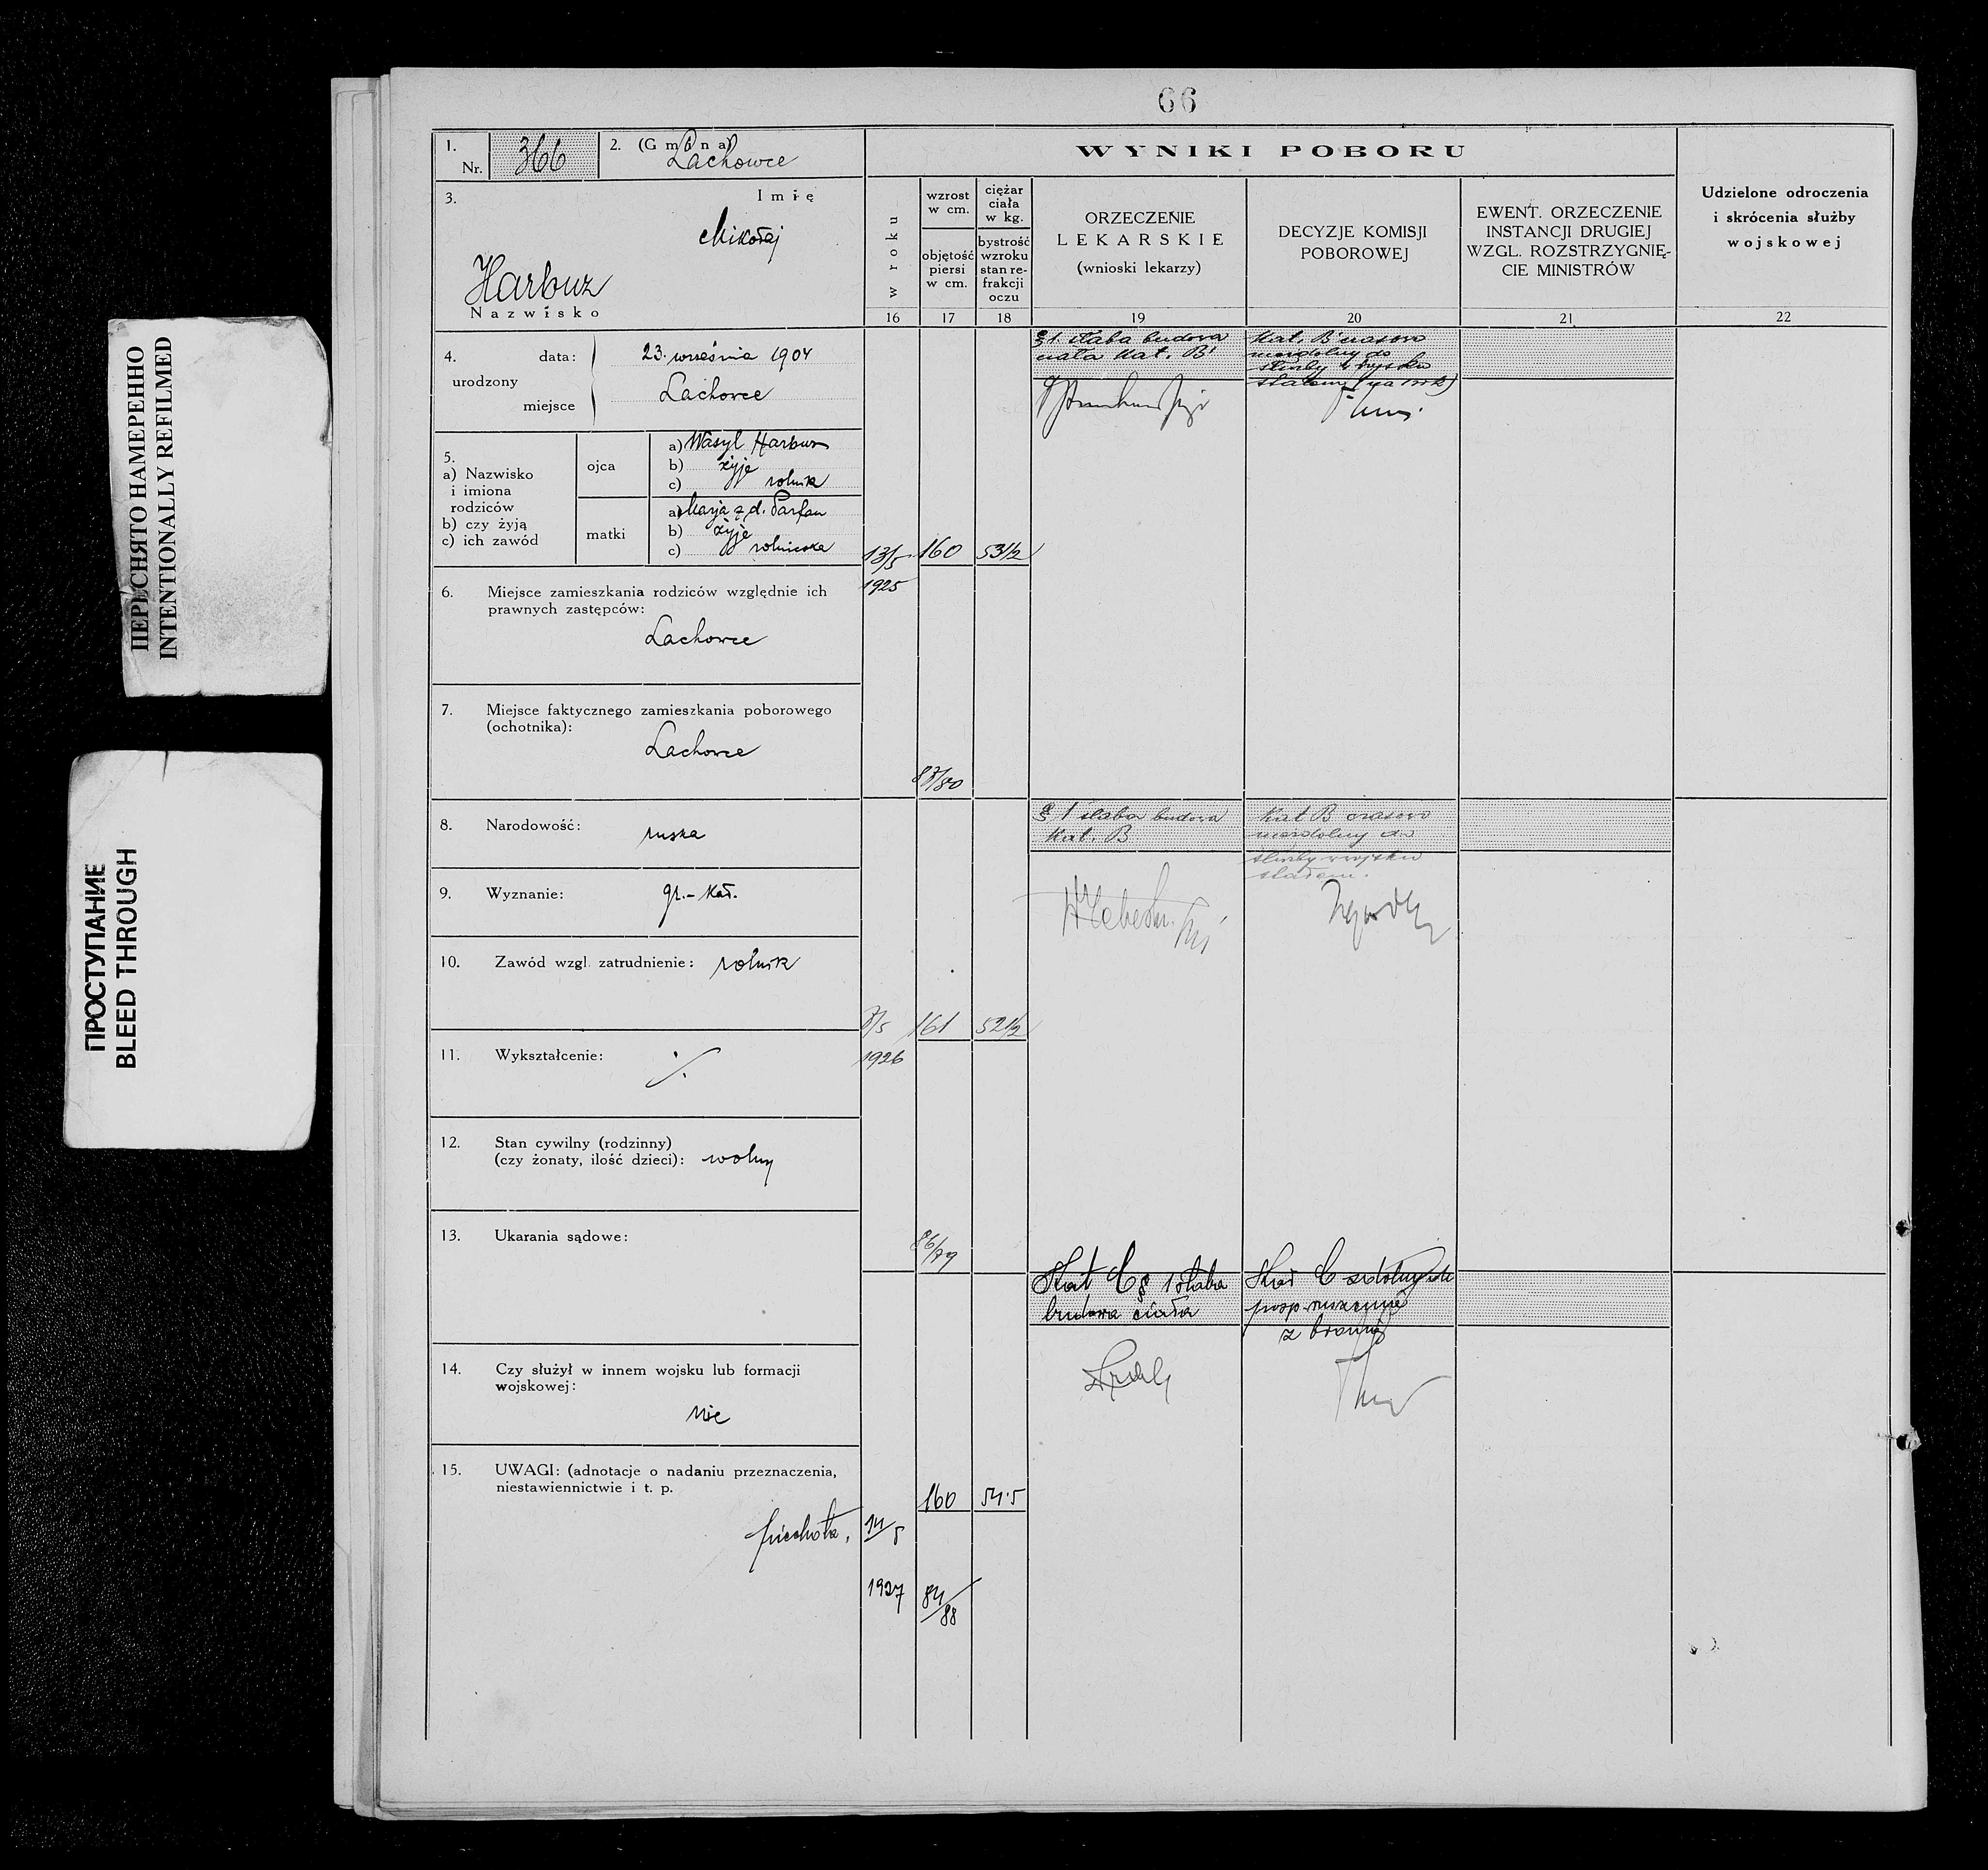 ПЕРЕСНЯТО НАМЕРЕННО
INTENTIONALLY REFILMED
ПРОСТУПАНИЕ
BLEED THROUGH
66
1.
Nr. 366
2. (Gmina)
Lachowce
3. Imię
Mikołaj
Harbuz
Nazwisko
4. urodzony
data: 23. września 1904
miejsce Lachowce
5.
a) Nazwisko
i imiona
rodziców
b) czy żyją
c) ich zawód
ojca
a) Wasyl Harbuz
b) żyje
c) rolnik
matki
a) Marja z d. Parfan
b) żyje
c) rolniczka
6. Miejsce zamieszkania rodziców względnie ich
prawnych zastępców:
Lachowce
7. Miejsce faktycznego zamieszkania poborowego
(ochotnika):
Lachowce
8. Narodowość: ruska
9. Wyznanie: gr.-kat.
10. Zawód wzgl. zatrudnienie: rolnik
11. Wykształcenie: ./.
12. Stan cywilny (rodzinny)
(czy żonaty, ilość dzieci): wolny
13. Ukarania sądowe:
14. Czy służył w innem wojsku lub formacji
wojskowej:
nie
15. UWAGI: (adnotacje o nadaniu przeznaczenia,
niestawiennictwie i t. p.
piechota.
WYNIKI POBORU
w roku
16
wzrost
w cm.
objętość
piersi
w cm.
17
ciężar
ciała
w kg.
bystrość
wzroku
stan re-
frakcji
oczu
18
ORZECZENIE
LEKARSKIE
(wnioski lekarzy)
19
DECYZJE KOMISJI
POBOROWEJ
20
EWENT. ORZECZENIE
INSTANCJI DRUGIEJ
WZGL. ROZSTRZYGNIĘ-
CIE MINISTRÓW
21
Udzielone odroczenia
i skrócenia służby
wojskowej
22
13/5
1925
160
53 1/2
87/80
§ 1. słaba budowa
ciała Kat. B
Kat. B czasowo
niezdolny do
służby w wojsku
stałem
/5
1926
161
52 1/2
86/79
§ 1 słaba budowa
Kat. B
Kat B czasowo
niezdolny do
służby w wojsku
stałem.
14/5
1927
160
54.5
84/88
Kat C § 1 słaba
budowa ciała
Kat C zdolny do
posp. ruszenia
z bronią